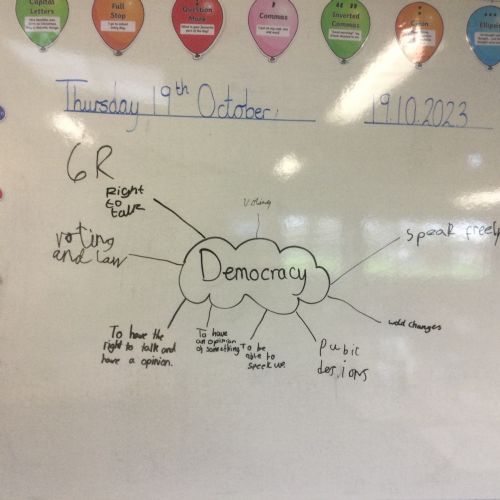 Capital
Letters
Full
Stop
Question
Mark
Commas
Inverted
Commas
Colon
Ellipsis
Thursday 19th October.
19.10.2023
6R
Right
to
talk
voting
speak freely
voting
and law
Democracy
wold changes
To have the
right to talk and
have a opinion.
To have
an opinion
of something
To be
able to
speek up.
pubic
desions